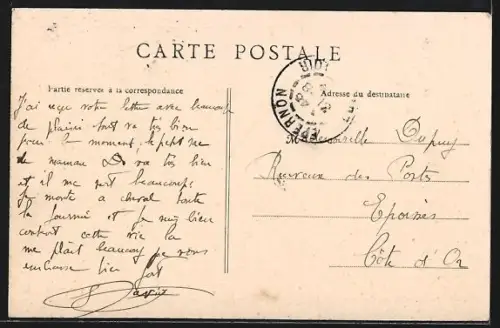 CARTE POSTALE
Partie réservée à la correspondance
Adresse du destinataire
J'ai reçu votre lettre avec beaucoup
de plaisir tout va très bien
pour le moment, le petit
de maman va très bien
et il me beaucoup
Je monte à cheval toute
la journée et je suis bien
content cette vie la
me plait beaucoup je vous
embrasse bien fort
EPERNON
Mademoiselle Dupuy
Receveuse des Postes
Epoisses
Côte d'Or